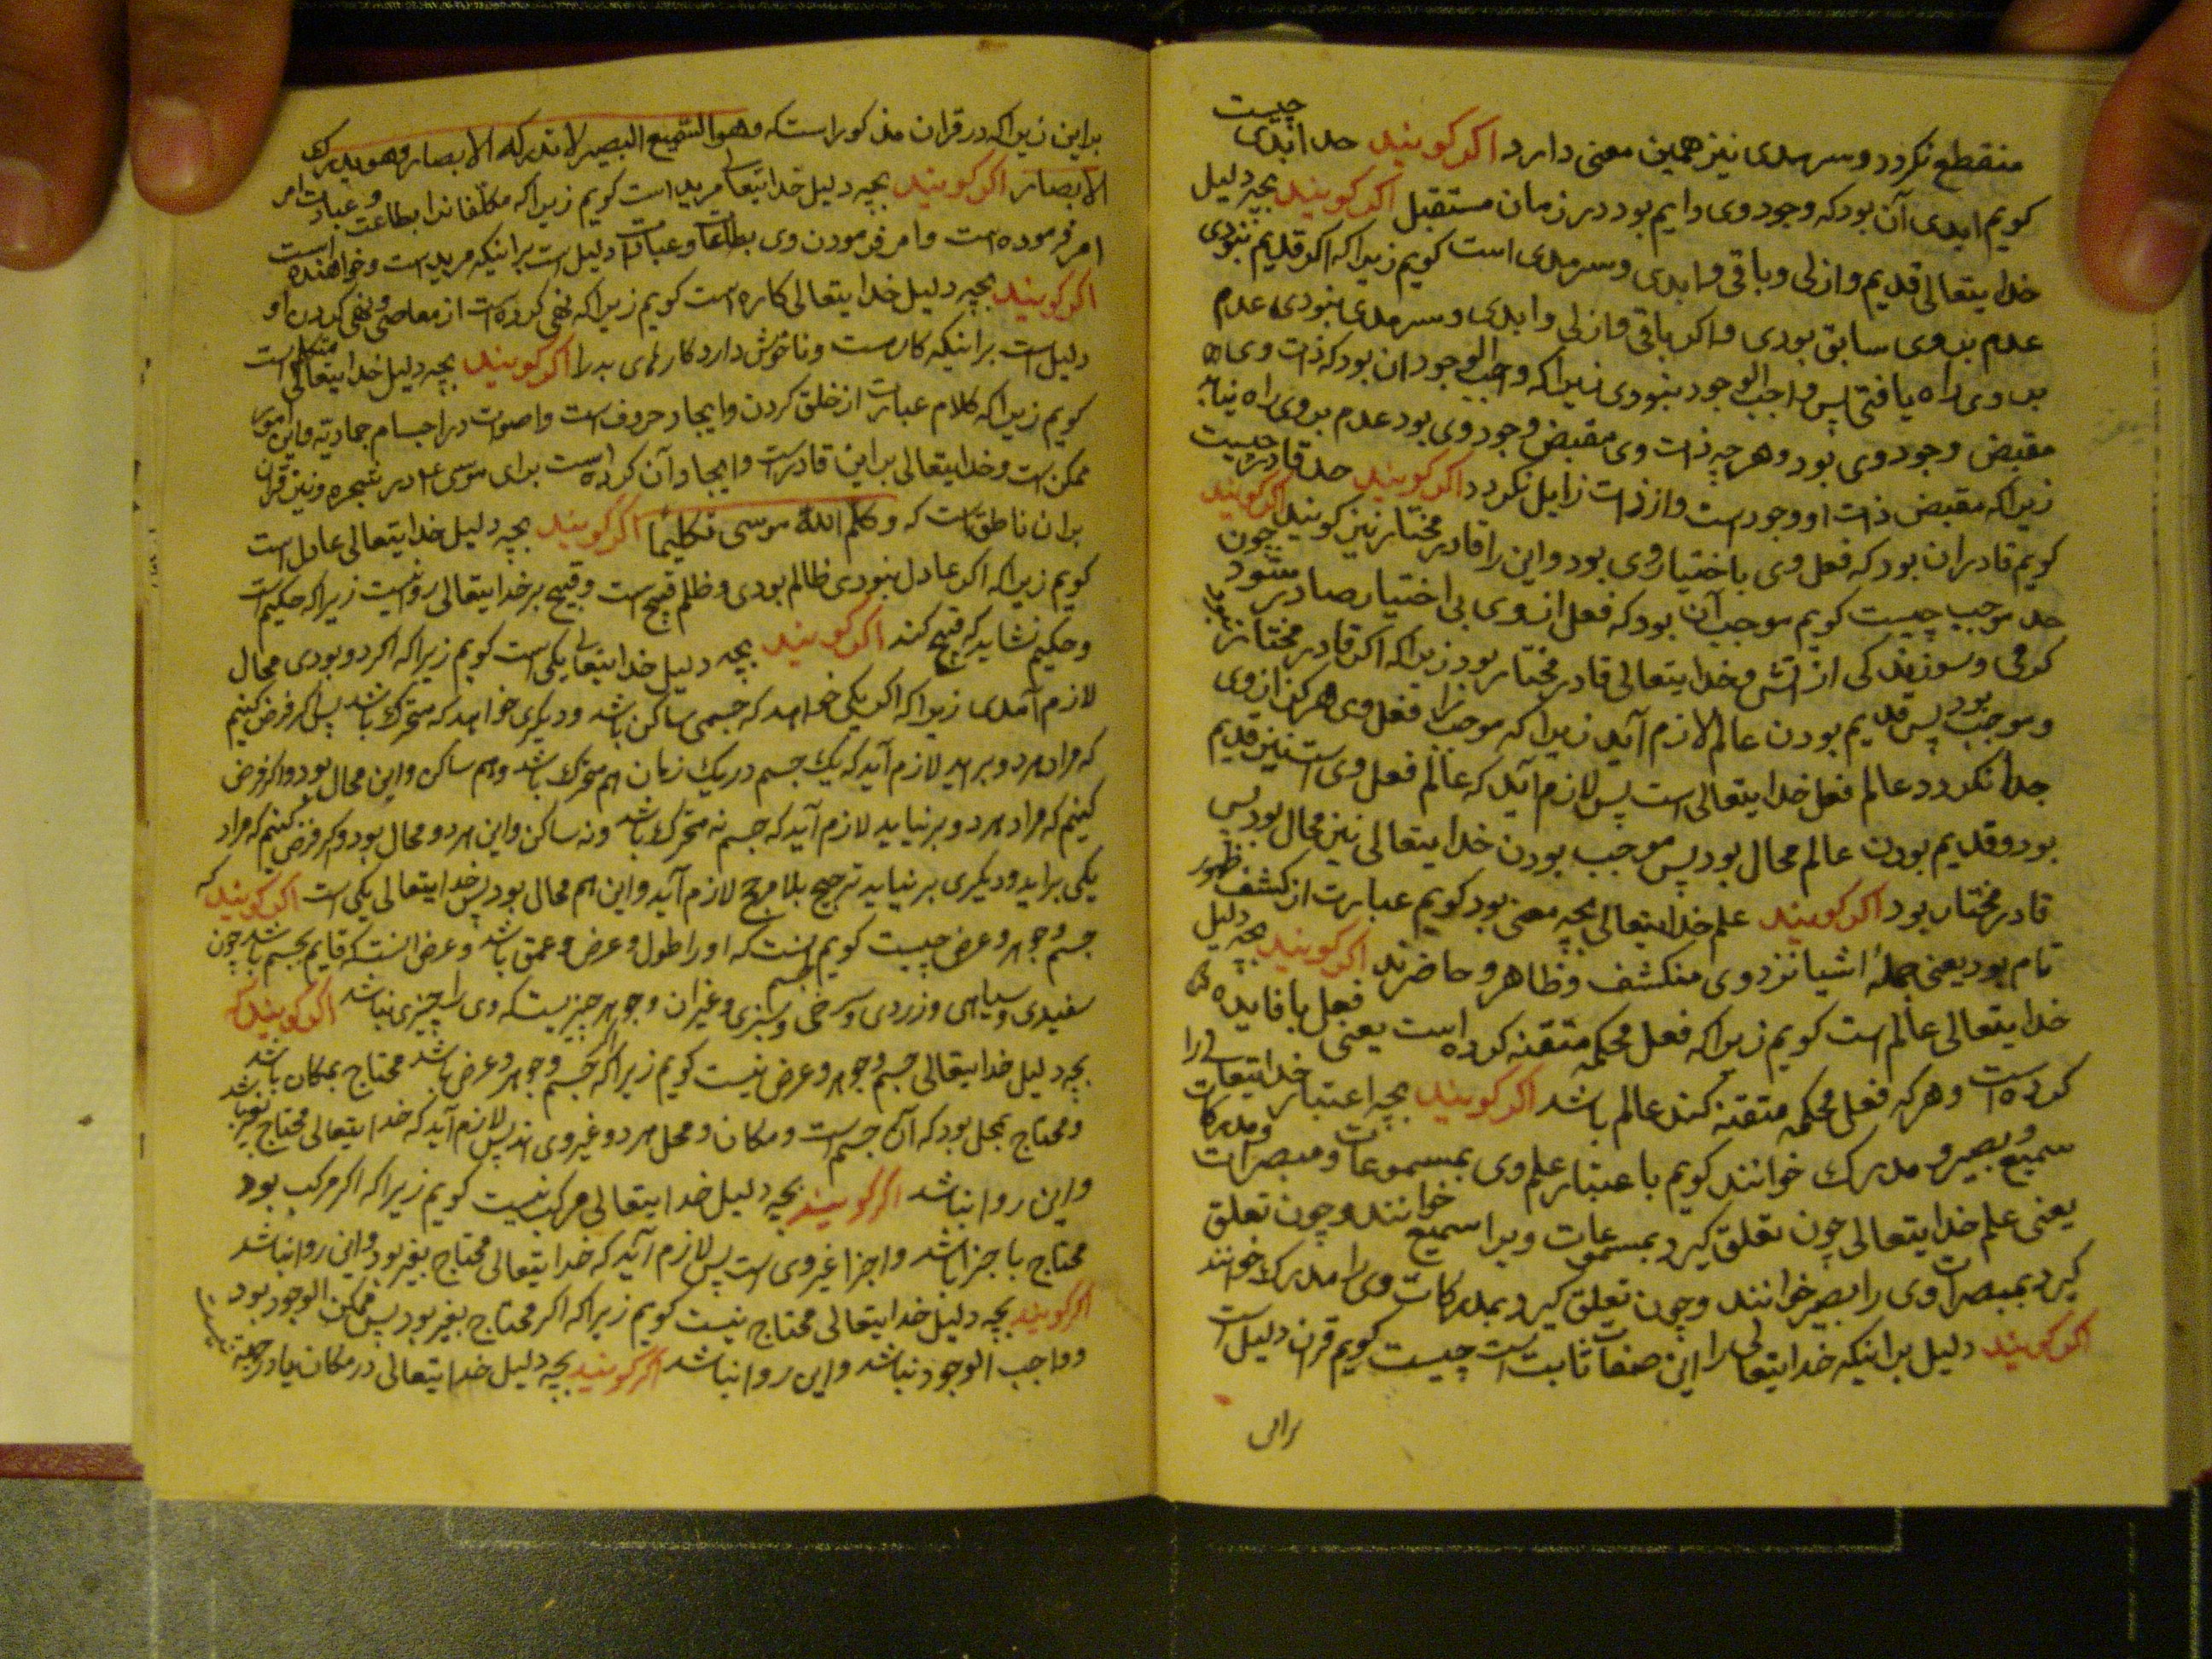 منقطع نکردد و سرمدی نیز همین معنی دارد اکر کویند حد ابدی چیست
کویم ابدی آن بود که وجود وی دایم بود در زمان مستقبل اکر کویند بچه دلیل
خدایتعالی قدیم و ازلی و باقی و ابدی و سرمدی است کویم زیرا که اکر قدیم نبودی
عدم بر وی سابق بودی و اکر باقی و ازلی و ابدی و سرمدی نبودی عدم
بر وی راه یافتی پس واجب الوجود نبودی زیرا که واجب الوجود ان بود که ذات وی
مقتضی وجود وی بود و هر چه ذات وی مقتضی وجود وی بود عدم بر وی راه نیابد
زیرا که مقتضی ذات او وجودست و از ذات زایل نکردد اکر کویند حد قادر چیست
کویم قادر ان بود که فعل وی باختیار وی بود و این را قادر مختار نیز کویند اکر کویند
حد موجب چیست کویم موجب آن بود که فعل از وی بی اختیار صادر شود چون
کرمی و سوزندکی از آتش و خدایتعالی قادر مختار بود زیرا که اکر قادر مختار نبود
و موجب بود پس قدیم بودن عالم لازم آید زیرا که موجب را فعل وی هرکز از وی
جدا نکردد و عالم فعل خدایتعالی است پس لازم آید که عالم فعل وی است نیز قدیم
بود و قدیم بودن عالم محال بود پس موجب بودن خدایتعالی نیز محال بود پس
قادر مختار بود اکر کویند علم خدایتعالی بچه معنی بود کویم عبارت از کشف و ظهور
تام بود یعنی جملهٔ اشیا نزد وی منکشف و ظاهر و حاضرند اکر کویند بچه دلیل
خدایتعالی عالم است کویم زیرا که فعل محکمه متقنه کرده است یعنی فعل بافایده
کرده است و هر که فعل محکمه متقنه کند عالم باشد اکر کویند بچه اعتبار خدایتعالی را
سمیع و بصیر و مدرک خوانند کویم باعتبار علم وی بمسموعات و مبصرات و مدرکات
یعنی علم خدایتعالی چون تعلق کیرد بمسموعات ویرا سمیع خوانند و چون تعلق
کیرد بمبصرات وی را بصیر خوانند و چون تعلق کیرد بمدرکات وی را مدرک خوانند
اکر کویند دلیل بر اینکه خدایتعالی را این صفات ثابت است چیست کویم قران دلیل است
براین
براین زیرا که در قران مذکور است که وهو السمیع البصیر لا تدرکه الابصار وهو یدرک
الابصار اکر کویند بچه دلیل خدایتعالی مرید است کویم زیرا که مکلفانرا بطاعت و عبادت امر
امر فرموده است و امر فرمودن وی بطاعات و عبادات دلیل است بر اینکه مرید است و خواهنده است
اکر کویند بچه دلیل خدایتعالی کاره است کویم زیرا که نهی کرده است از معاصی و نهی کردن او
دلیل است بر اینکه کارهست و ناخوش دارد کارهای بد را اکر کویند بچه دلیل خدایتعالی متکلم است
کویم زیرا که کلام عبارت از خلق کردن و ایجاد حروف است و اصوات در اجسام جمادیه و این امور
ممکن است و خدایتعالی بر این قادر است و ایجاد آن کرده است برای موسی ع در شجره و نیز قران
بران ناطق است که وکلم الله موسی تکلیما اکر کویند بچه دلیل خدایتعالی عادل است
کویم زیرا که اکر عادل نبودی ظالم بودی و ظلم قبیح است و قبیح بر خدایتعالی روا نیست زیرا که حکیم است
و حکیم نشاید که قبیح کند اکر کویند بچه دلیل خدایتعالی یکی است کویم زیرا که اکر دو بودی محال
لازم آمدی زیرا که اکر یکی خواهد که جسمی ساکن باشد و دیکری خواهد که متحرک باشد پس اکر فرض کنیم
که مراد هردو بر آید لازم آید که یک جسم در یک زمان هم متحرک باشد و هم ساکن و این محال بود و اکر فرض
کنیم که مراد هردو بر نیاید لازم آید که جسم نه متحرک باشد و نه ساکن و این هردو محال بود و اکر فرض کنیم که مراد
یکی براید و دیکری بر نیاید ترجیح بلا مرجح لازم آید و این هم محال بود پس خدایتعالی یکی است اکر کویند که
جسم و جوهر و عرض چیست کویم جسم انست که او را طول و عرض و عمق باشد و عرض انست که قایم بجسم باشد چون
سفیدی و سیاهی و زردی و سرخی و سبزی و غیر ان و جوهر چیزیست که وی را چیزی نباشد اکر کویند که
بچه دلیل خدایتعالی جسم و جوهر و عرض نیست کویم زیرا که اکر جسم و جوهر و عرض باشد محتاج بمکان باشد
و محتاج بمحل بود که آن جسم است و مکان و محل هردو غیر وی اند پس لازم آید که خدایتعالی محتاج بغیر باشد
و این روا نباشد اکر کویند بچه دلیل خدایتعالی مرکب نیست کویم زیرا که اکر مرکب بود
محتاج باجزا باشد و اجزا غیر وی است پس لازم آید که خدایتعالی محتاج بغیر بود و این روا نباشد
اکر کویند بچه دلیل خدایتعالی محتاج نیست کویم زیرا که اکر محتاج بغیر بود پس ممکن الوجود بود
و واجب الوجود نباشد و این روا نباشد اکر کویند بچه دلیل خدایتعالی در مکان یا در جهة